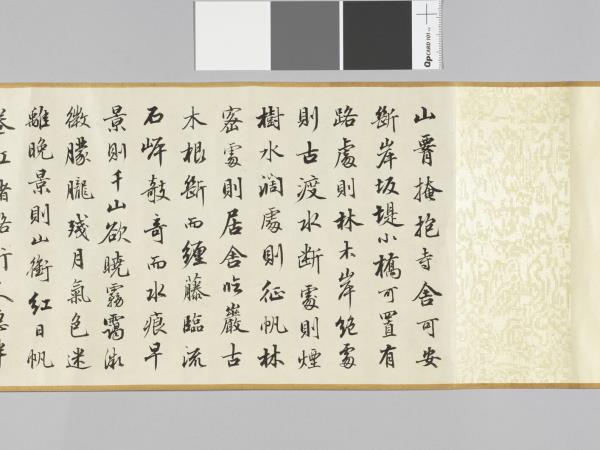 山脣掩抱寺舍可安
斷岸坂堤小橋可置有
路處則林木岸絕處
則古渡水断處則煙
樹水濶處則征帆林
密處則居舍臨巖古
木根斷而纏藤臨流
石岸敧奇而水痕早
景則千山欲曉霧靄微
微朦朧殘月氣色迷
離晚景則山銜紅日帆
卷江渚路行人急半
QpCARD 101